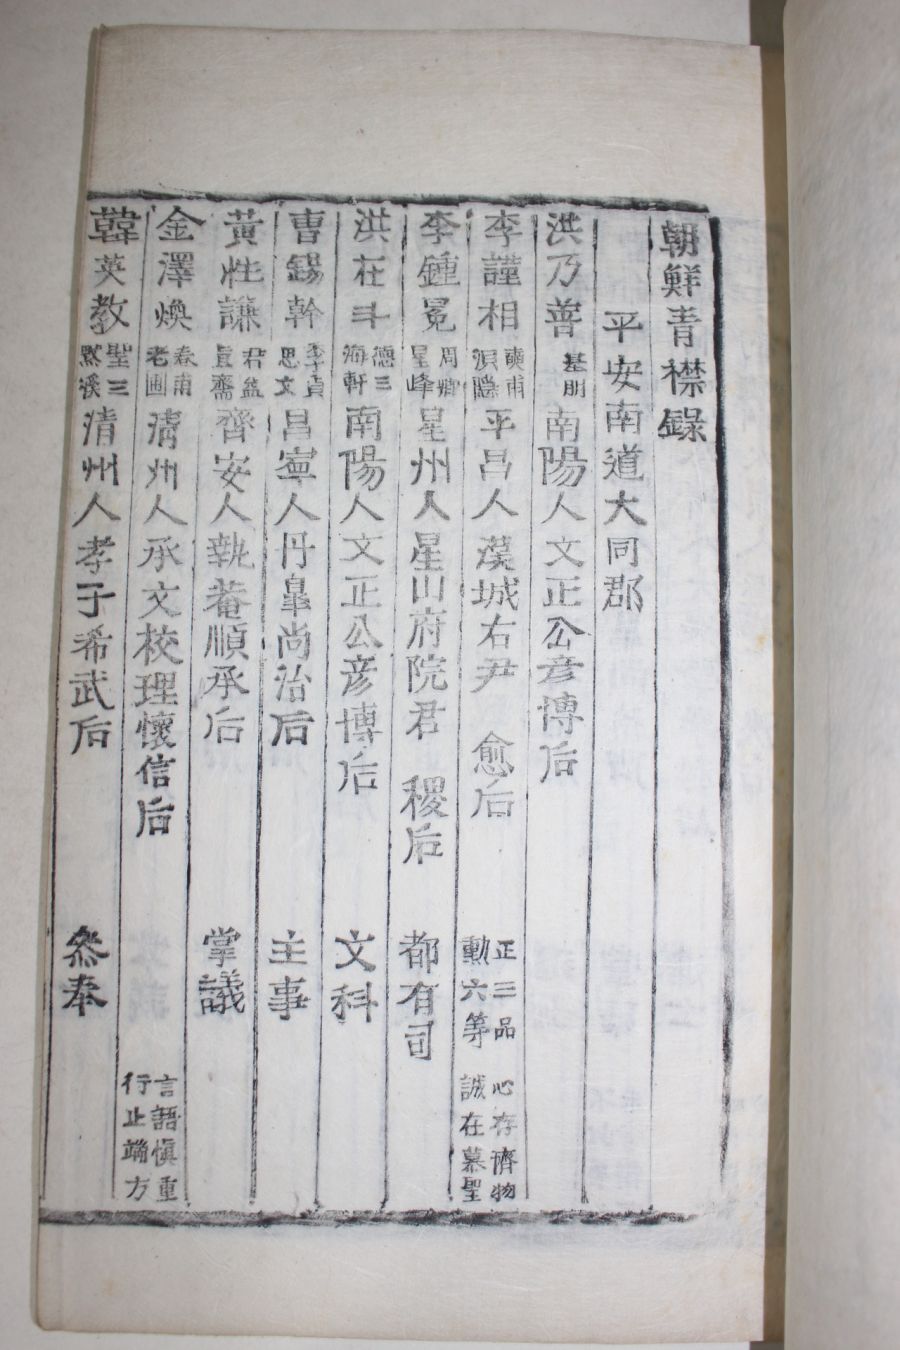 朝鮮青襟錄
平安南道大同郡
洪乃善 基朋 南陽人文正公彦博后
李謹相 爽甫 溟隱 平昌人漢城右尹 愈后 正三品 勳六等 心存濟物 誠在慕聖
李鍾冕 周卿 星峰 星州人星山府院君 稷后 都有司
洪在斗 德三 海軒 南陽人文正公彦博后 文科
曺錫幹 季貞 思文 昌寧人丹臯尚治后 主事
黃性謙 君益 直齋 齊安人執菴順承后 掌議
金澤煥 春甫 老圃 清州人承文校理懷信后 言語愼重 行止端方
韓英教 聖三 黙溪 清州人孝子希武后 叅奉